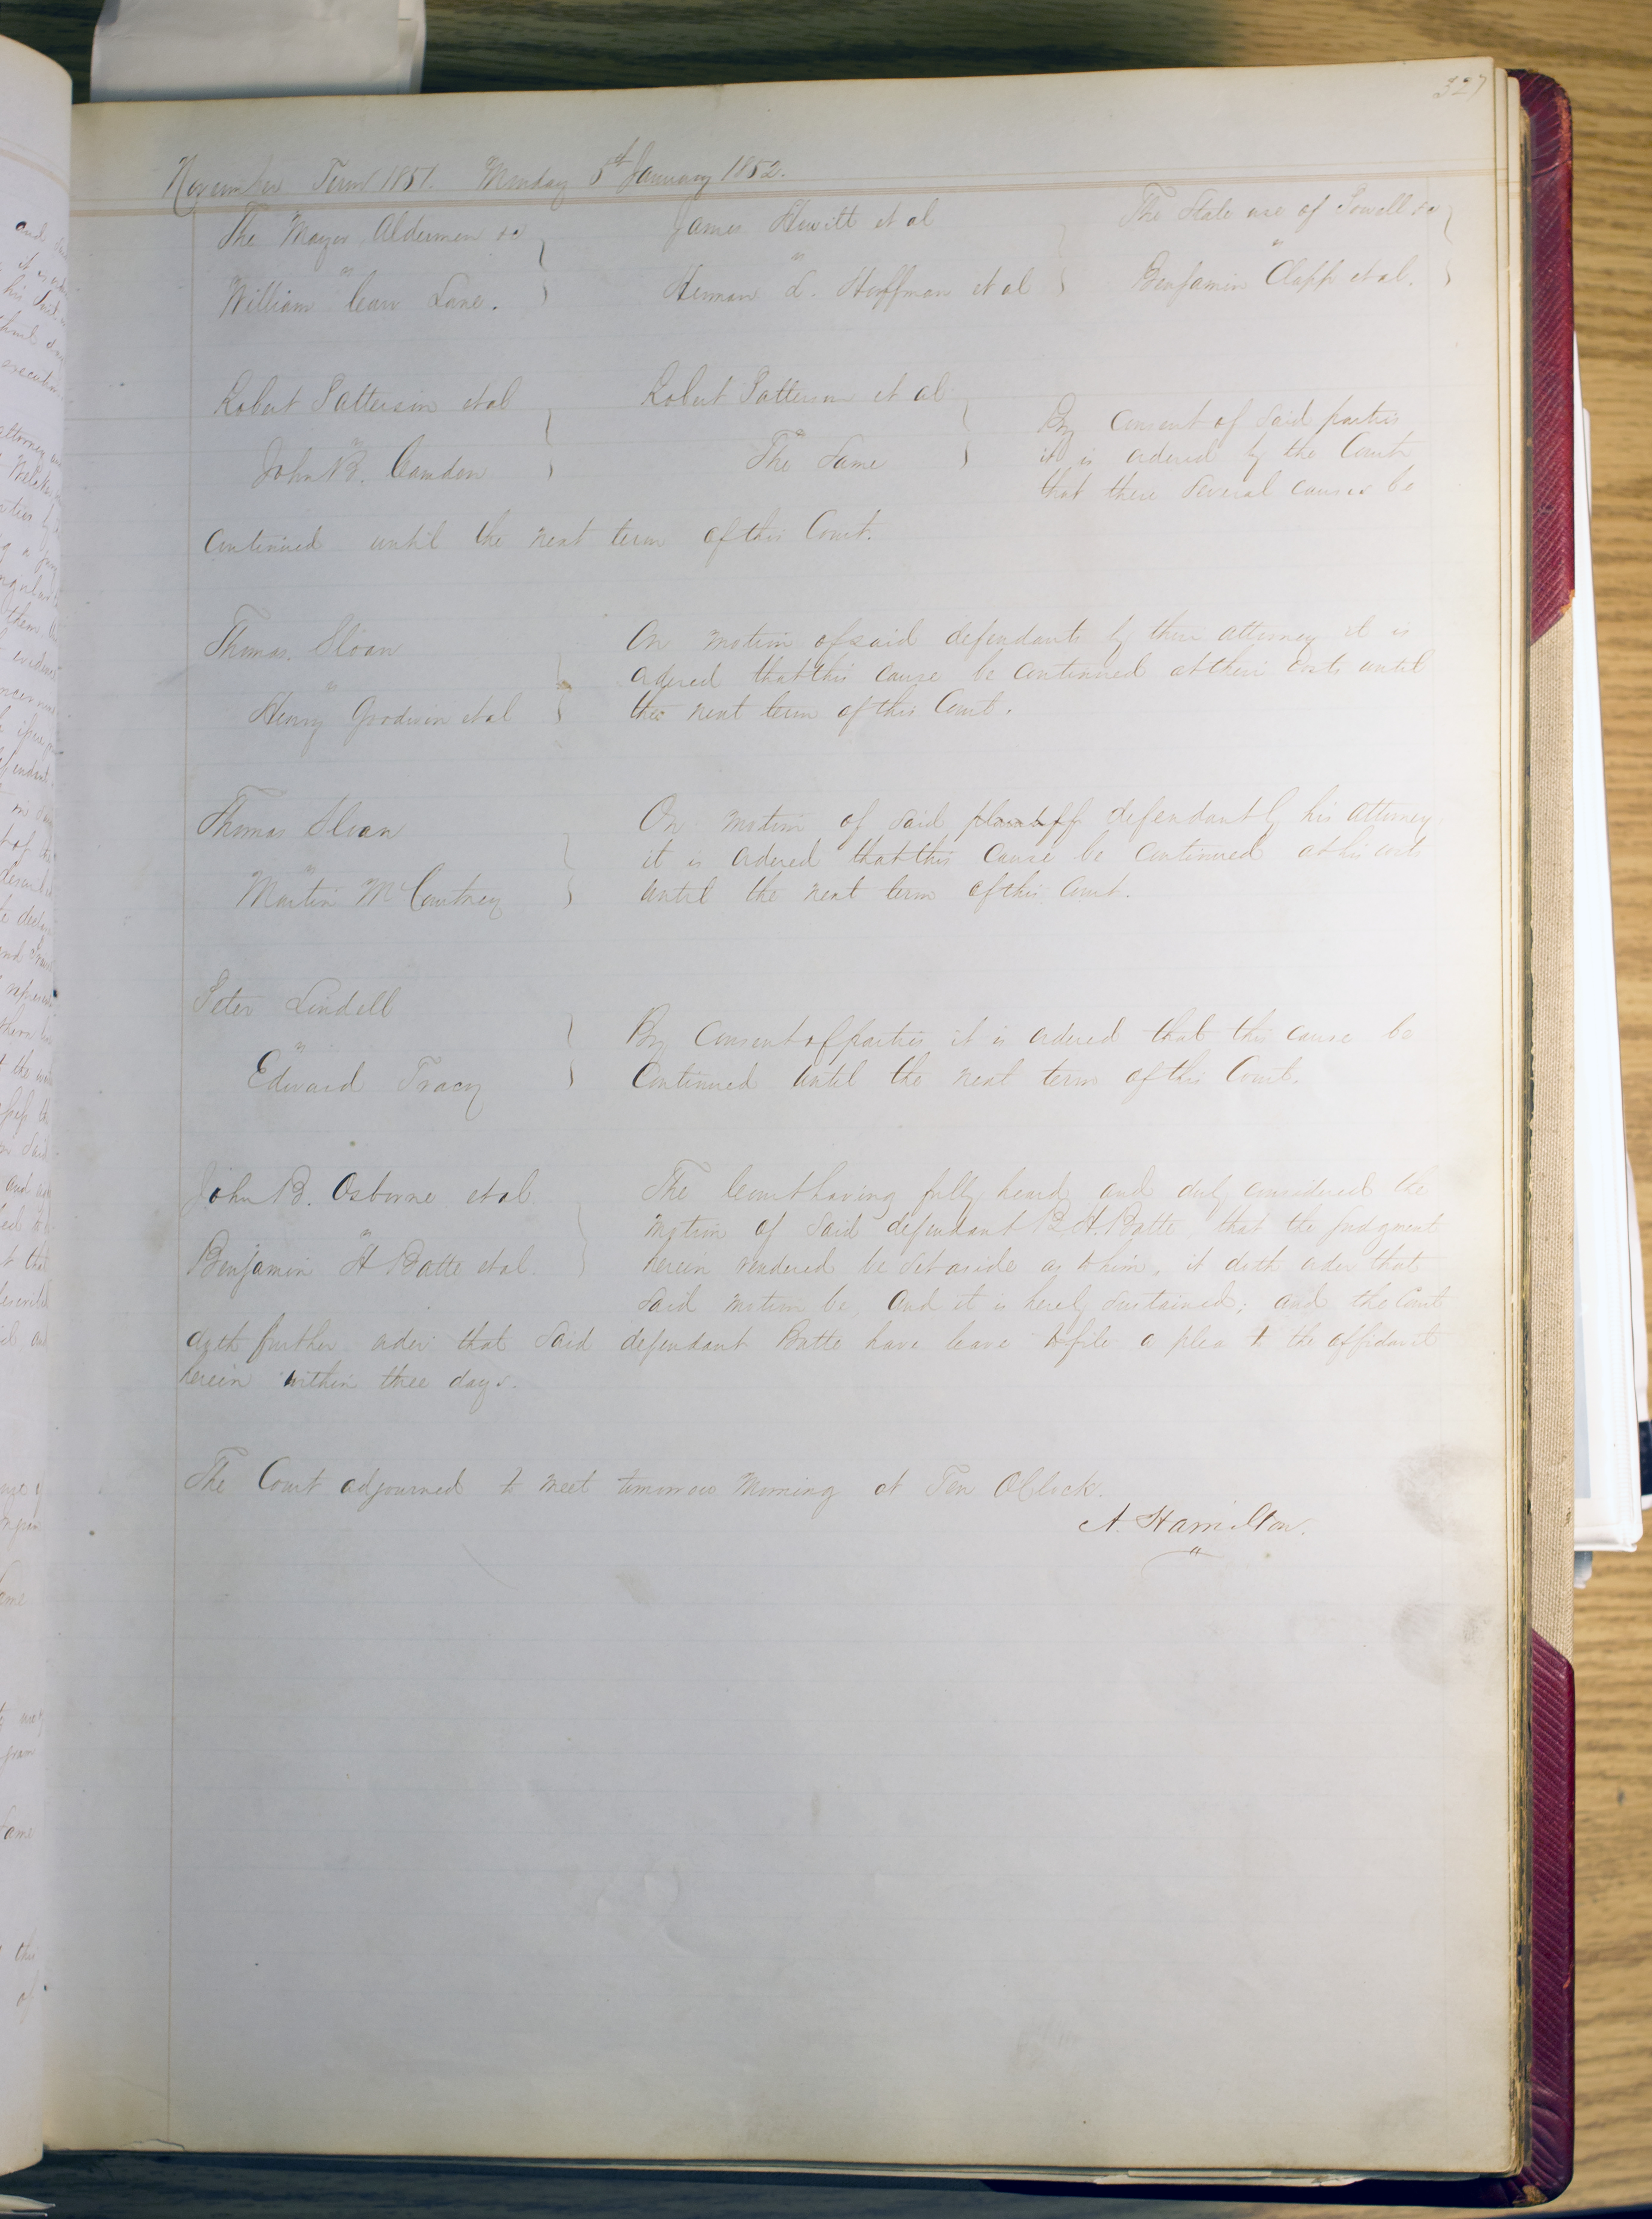 327
November Term 1851. Monday 5th January 1852.
The Mayor Aldermen &c
vs
William Carr Lane.
James Hewitt et al
vs
Herman L. Hoffman et al
The State use of Powell &c
vs
Benjamin Clapp et al.
Robert Patterson et al
vs
John B. Camden
Robert Patterson et al
vs
The Same
By consent of said parties
it is ordered by the Court
that these several causes be
continued until the next term of this Court.
Thomas Sloan
vs
Henry Goodwin et al
On motion of said defendants by their attorney it is
ordered that this cause be continued at their costs until
the next term of this Court.
Thomas Sloan
vs
Martin McCourtney
On motion of said plaintiff defendant by his attorney
it is ordered that this cause be continued at his costs
until the next term of this Court.
Peter Lindell
vs
Edward Tracy
By consent of parties it is ordered that this cause be
Continued until the next term of this Court.
John B. Osborne et al
vs
Benjamin H Batte et al.
The Court having fully heard and duly considered the
motion of said defendant B. H. Batte, that the judgment
herein rendered be set aside as to him, it doth order that
said motion be, and it is hereby sustained; and the Court
doth further order that said defendant Batte have leave to file a plea to the affidavit
herein within three days.
The Court adjourned to meet tomorrow morning at Ten OClock.
A. Hamilton.